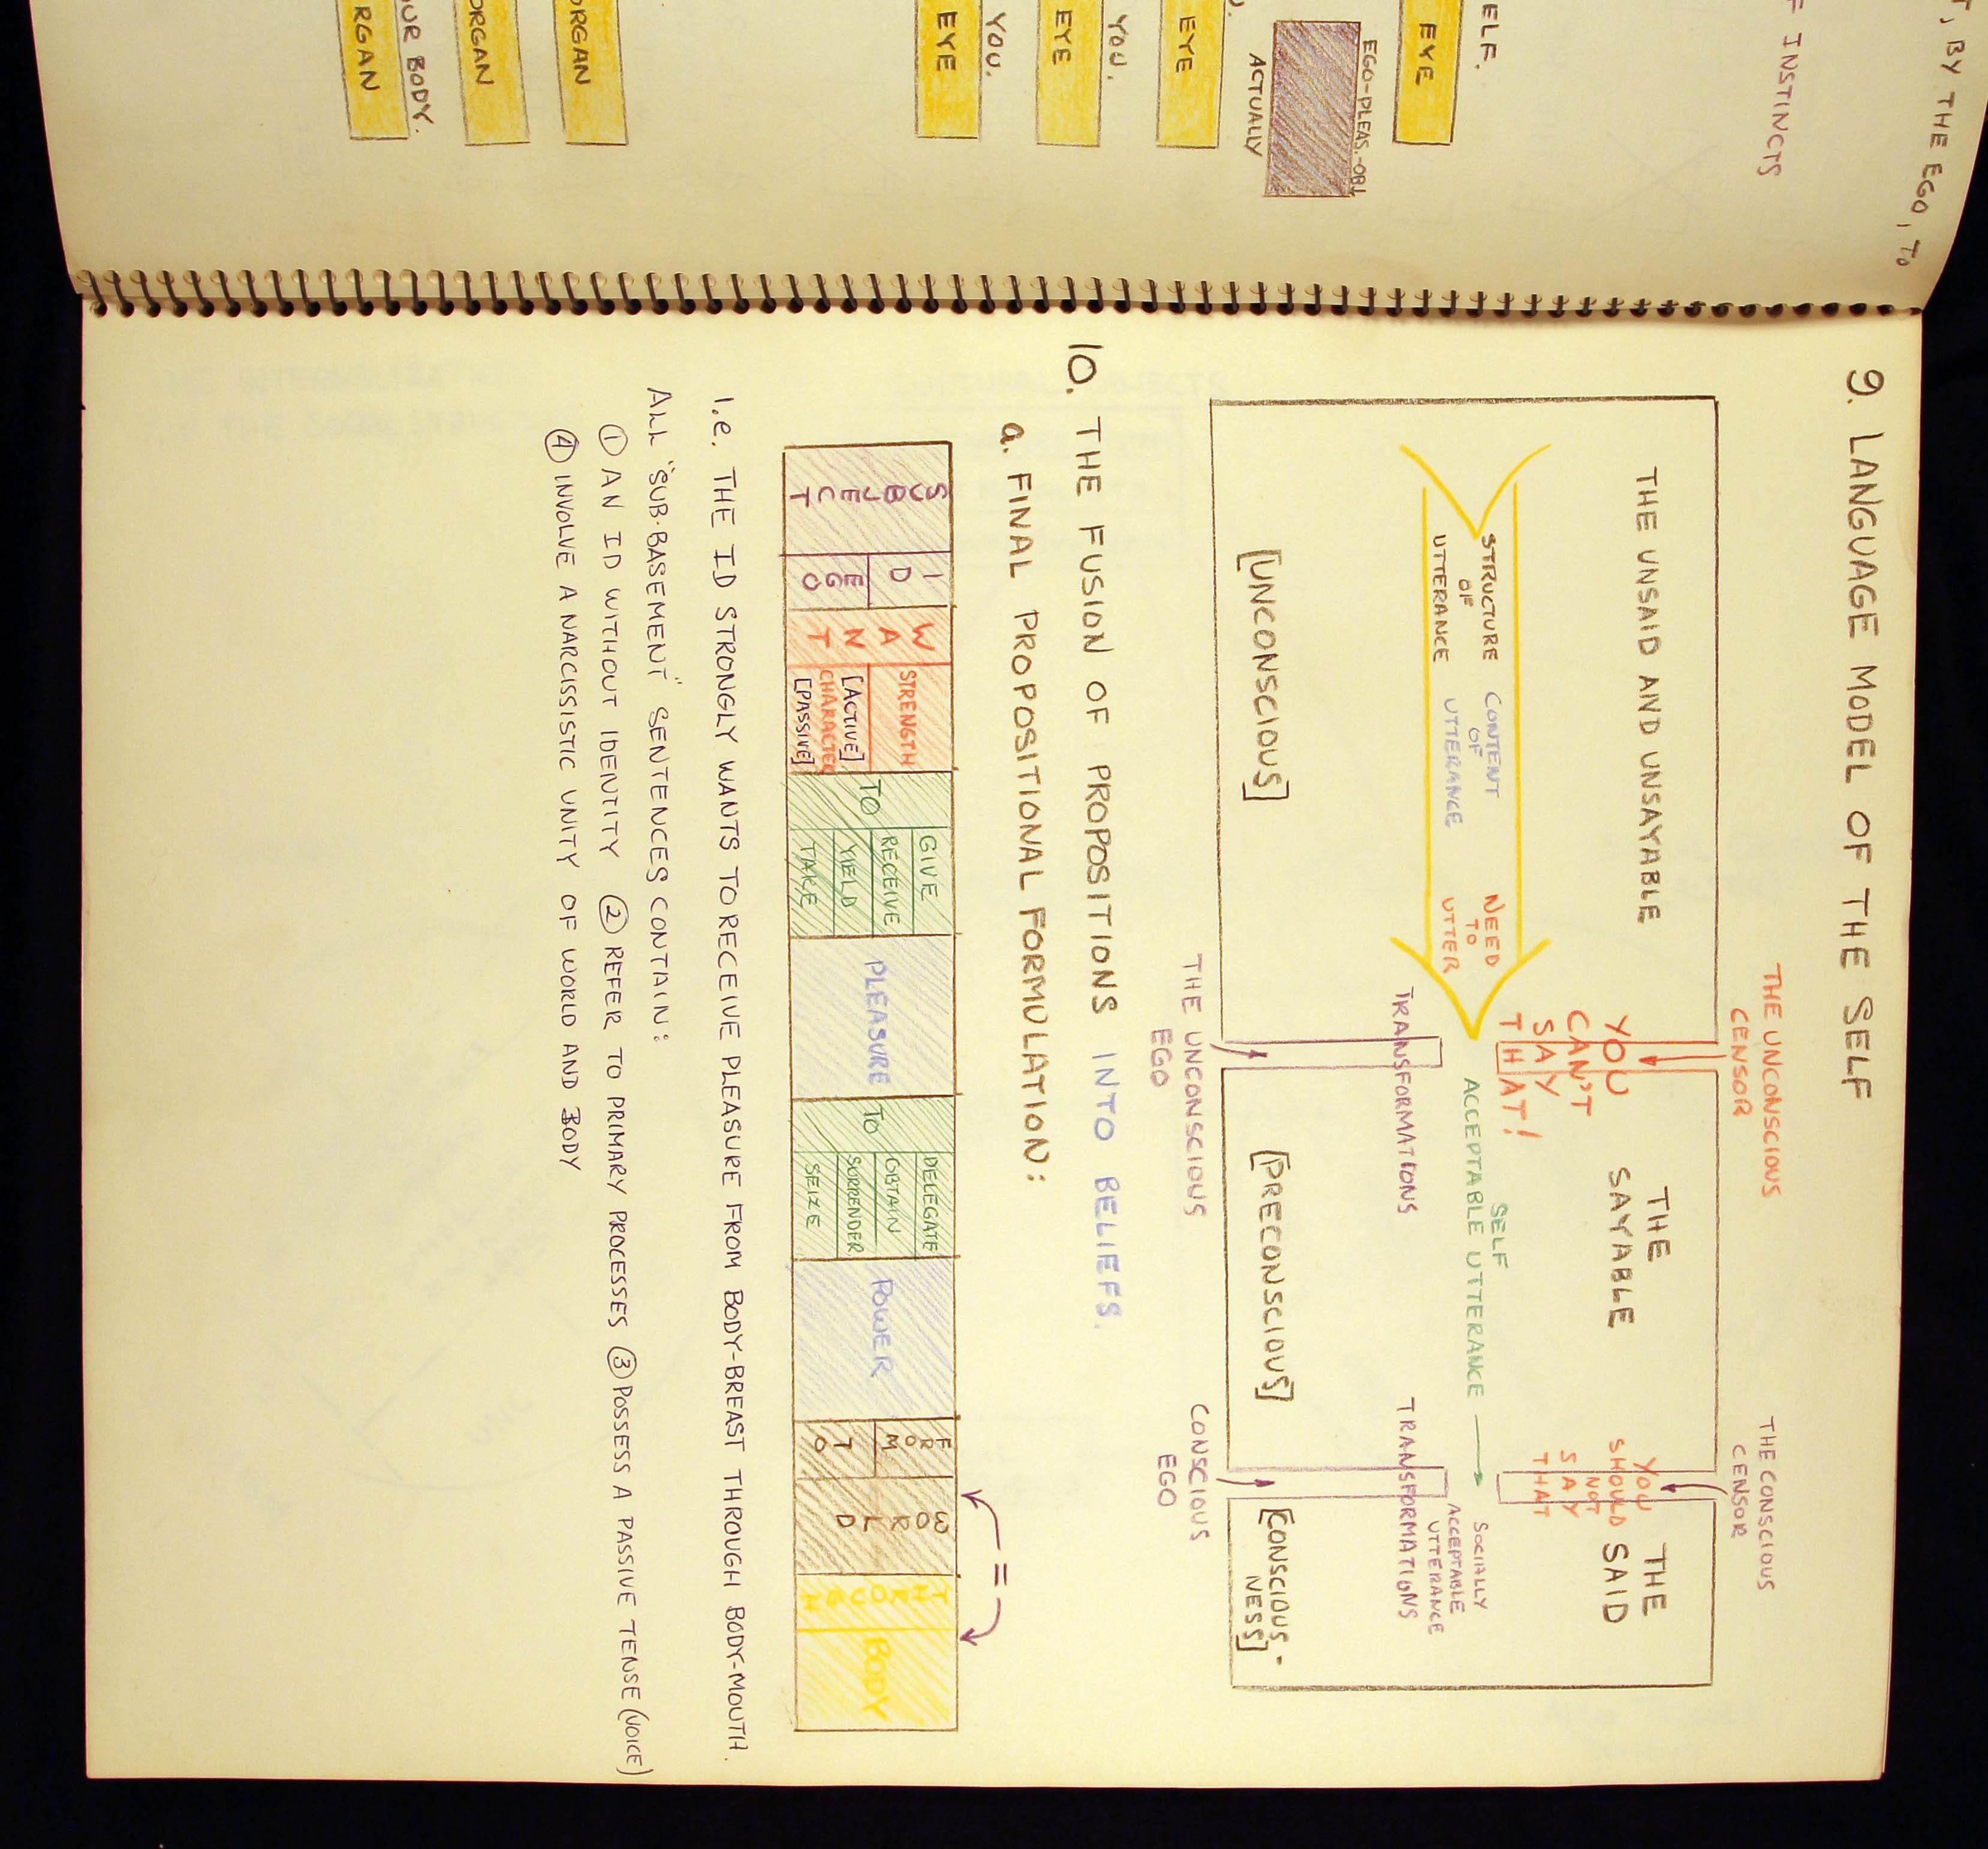 T, BY THE EGO, TO
F INSTINCTS
ELF.
EYE
EGO-PLEAS.-OBJ.
ACTUALLY
EYE
YOU.
EYE
YOU.
EYE
ORGAN
ORGAN
OUR BODY.
RGAN
9. LANGUAGE MODEL OF THE SELF
THE UNCONSCIOUS
CENSOR
THE CONSCIOUS
CENSOR
THE UNSAID AND UNSAYABLE
YOU
CAN'T
SAY
THAT!
THE
SAYABLE
YOU
SHOULD
NOT
SAY
THAT
THE
SAID
STRUCTURE
OF
UTTERANCE
CONTENT
OF
UTTERANCE
NEED
TO
UTTER
SELF
ACCEPTABLE UTTERANCE
SOCIALLY
ACCEPTABLE
UTTERANCE
TRANSFORMATIONS
TRANSFORMATIONS
[UNCONSCIOUS]
[PRECONSCIOUS]
[CONSCIOUS-
NESS]
THE UNCONSCIOUS
EGO
CONSCIOUS
EGO
10. THE FUSION OF PROPOSITIONS INTO BELIEFS.
a. FINAL PROPOSITIONAL FORMULATION:
=
SUBJECT
ID
EGO
WANT
STRENGTH
[ACTIVE]
CHARACTER
[PASSIVE]
TO
GIVE
RECEIVE
YIELD
TAKE
PLEASURE
TO
DELEGATE
OBTAIN
SURRENDER
SEIZE
POWER
FROM
TO
WORLD
BODY
I.e. THE ID STRONGLY WANTS TO RECEIVE PLEASURE FROM BODY-BREAST THROUGH BODY-MOUTH.
ALL "SUB-BASEMENT" SENTENCES CONTAIN:
① AN ID WITHOUT IDENTITY ② REFER TO PRIMARY PROCESSES ③ POSSESS A PASSIVE TENSE (VOICE)
④ INVOLVE A NARCISSISTIC UNITY OF WORLD AND BODY